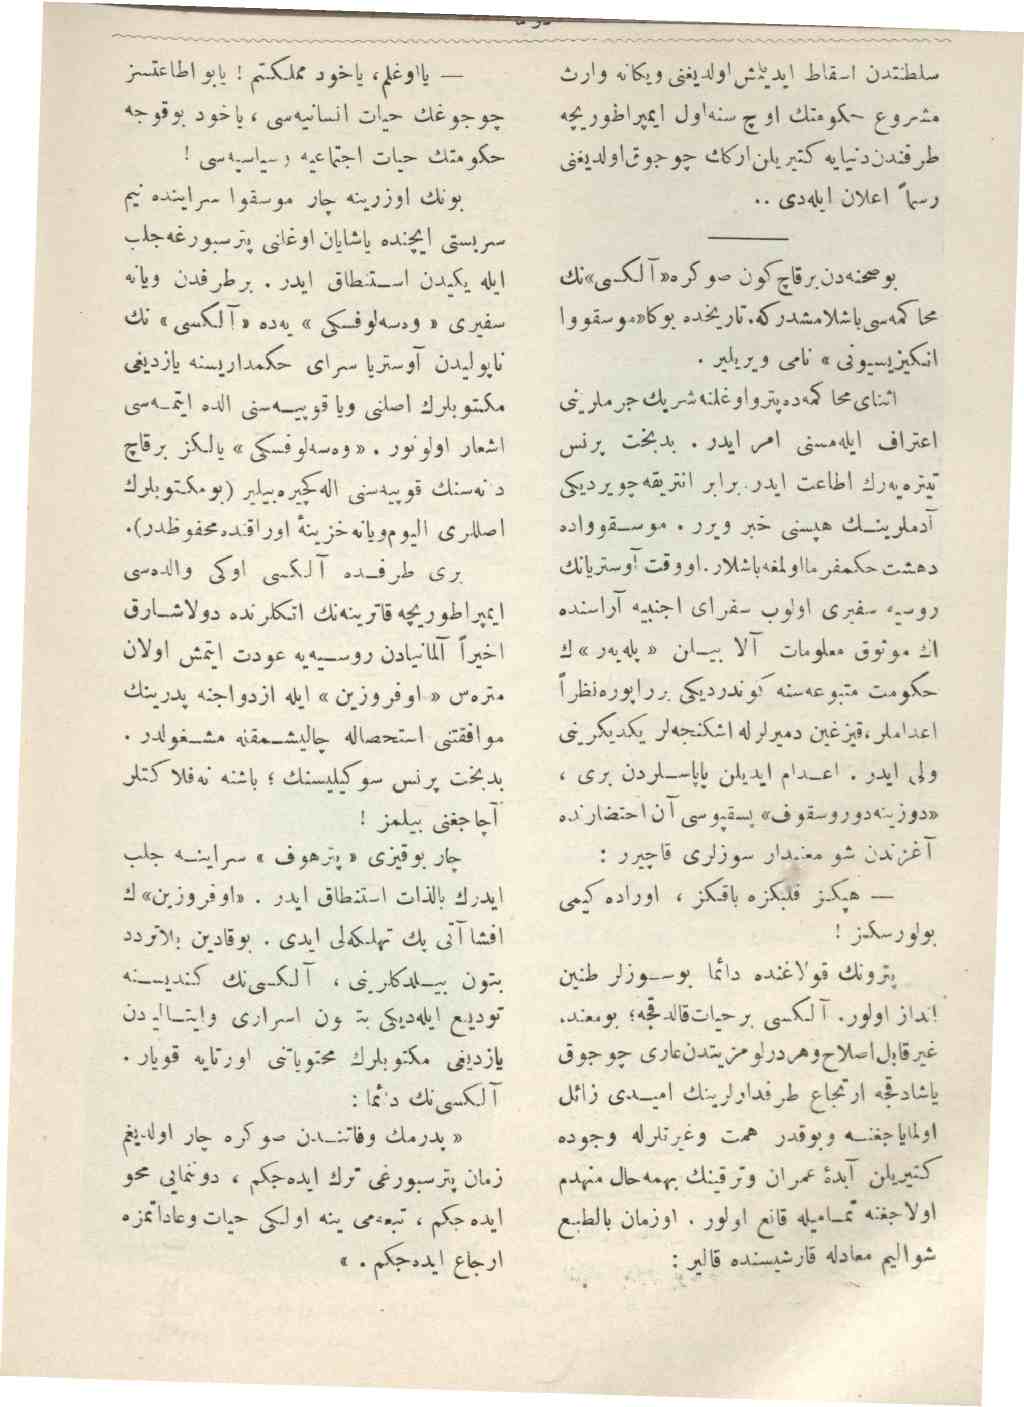 سلطنتدن اسقاط ایدیلمش اولدیغنی ویکانه وارث
مشروع حکومتك اوچ سنه اول ایمپراطوریچه
طرفندن دنیایه کتیریلن ارکك چوجوق اولدیغنی
رسماً اعلان ایله‌دی ..
بو صحنه‌دن برقاچ کون صوکره «آلکسی» نك
محاکمه‌سی باشلامشدرکه، تاریخده بوکا «موسقووا
انکیزیسیونی» نامی ویریلیر .
اثنای محاکمه‌ده پترو اوغلنه شریك جرملرینی
اعتراف ایله‌مسنی امر ایدر . بدبخت پرنس
تیتره‌یه‌رك اطاعت ایدر. برابر انتریقه چویردیکی
آدملرینك هپسنی خبر ویرر . موسقوواده
دهشت حکمفرما اولمغه باشلار. اووقت آوستریانك
روسیه سفیری اولوب سفرای اجنبیه آراسنده
اك موثوق معلومات آلا بیلن «پله‌یه‌ر» ك
حکومت متبوعه‌سنه کوندردیکی برراپوره نظراً
اعداملر، قیزغین دمیرلرله اشکنجه‌لر یکدیکرینی
ولی ایدر . اعدام ایدیلن پاپاسلردن بری ،
«دوزیته‌دوروسقوف» پسقپوسی آن احتضارنده
آغزندن شو معنیدار سوزلری قاچیرر :
— هپکز قلبکزه باقکز ، اوراده کیمی
بولورسکز !
پترونك قولاغنده دائما بوسوزلر طنین
انداز اولور. آلکسی برحیات قالدقجه؛ بومعند،
غیرقابل اصلاح وهردرلو مزیتدن عاری چوجوق
یاشادقجه ارتجاع طرفدارلرینك امیدی زائل
اولمایاجغنه وبوقدر همت وغیرتلرله وجوده
کتیریلن آبدهٔ عمران وترقینك بهمه‌حال منهدم
اولاجغنه تمامیله قانع اولور . اوزمان بالطبع
شو الیم معادله قارشیسنده قالیر :
— یا اوغلم، یاخود مملکتم ! یا بو اطاعتسز
چوجوغك حیات انسانیه‌سی ، یاخود بوقوجه
حکومتك حیات اجتماعیه و سیاسیه‌سی !
بونك اوزرینه چار موسقوا سراینده نیم
سربستی ایچنده یاشایان اوغلنی پترسبورغه جلب
ایله یکیدن استنطاق ایدر . برطرفدن ویانه
سفیری «وه‌سه‌لوفسکی» یه‌ده «آلکسی» نك
ناپولیدن آوستریا سرای حکمداریسنه یازدیغی
مکتوبلرك اصلنی ویا قوپیه‌سنی الده ایتمه‌سی
اشعار اولونور . «وه‌سه‌لوفسکی» یالکز برقاچ
دانه‌سنك قوپیه‌سنی اله کچیره‌بیلیر (بومکتوبلرك
اصللری الیوم ویانه خزینهٔ اوراقنده محفوظدر).
بری طرفده آلکسی اوکی والده‌سی
ایمپراطوریچه قاترینه‌نك اتکلرنده دولاشارق
اخیراً آلمانیادن روسیه‌یه عودت ایتمش اولان
متره‌س «اوفروزین» ایله ازدواجنه پدرینك
موافقتنی استحصاله چالیشمقله مشغولدر .
بدبخت پرنس سوکیلیسنك ؛ باشنه نه فلاکتلر
آچاجغنی بیلمز !
چار بوقیزی «پترهوف» سراینه جلب
ایدرك بالذات استنطاق ایدر . «اوفروزین» ك
افشاآتی پك تهلکه‌لی ایدی . بوقادین بلاتردد
بتون بیلدکلرینی ، آلکسی‌نك کندیسنه
تودیع ایله‌دیکی بتون اسراری وایتالیادن
یازدیغی مکتوبلرك محتویاتنی اورتایه قویار .
آلکسی‌نك دائما :
« پدرمك وفاتندن صوکره چار اولدیغم
زمان پترسبورغی ترك ایده‌جکم ، دونمایی محو
ایده جکم ، تبعه‌می ینه اولکی حیات وعاداتمزه
ارجاع ایده‌جکم . »